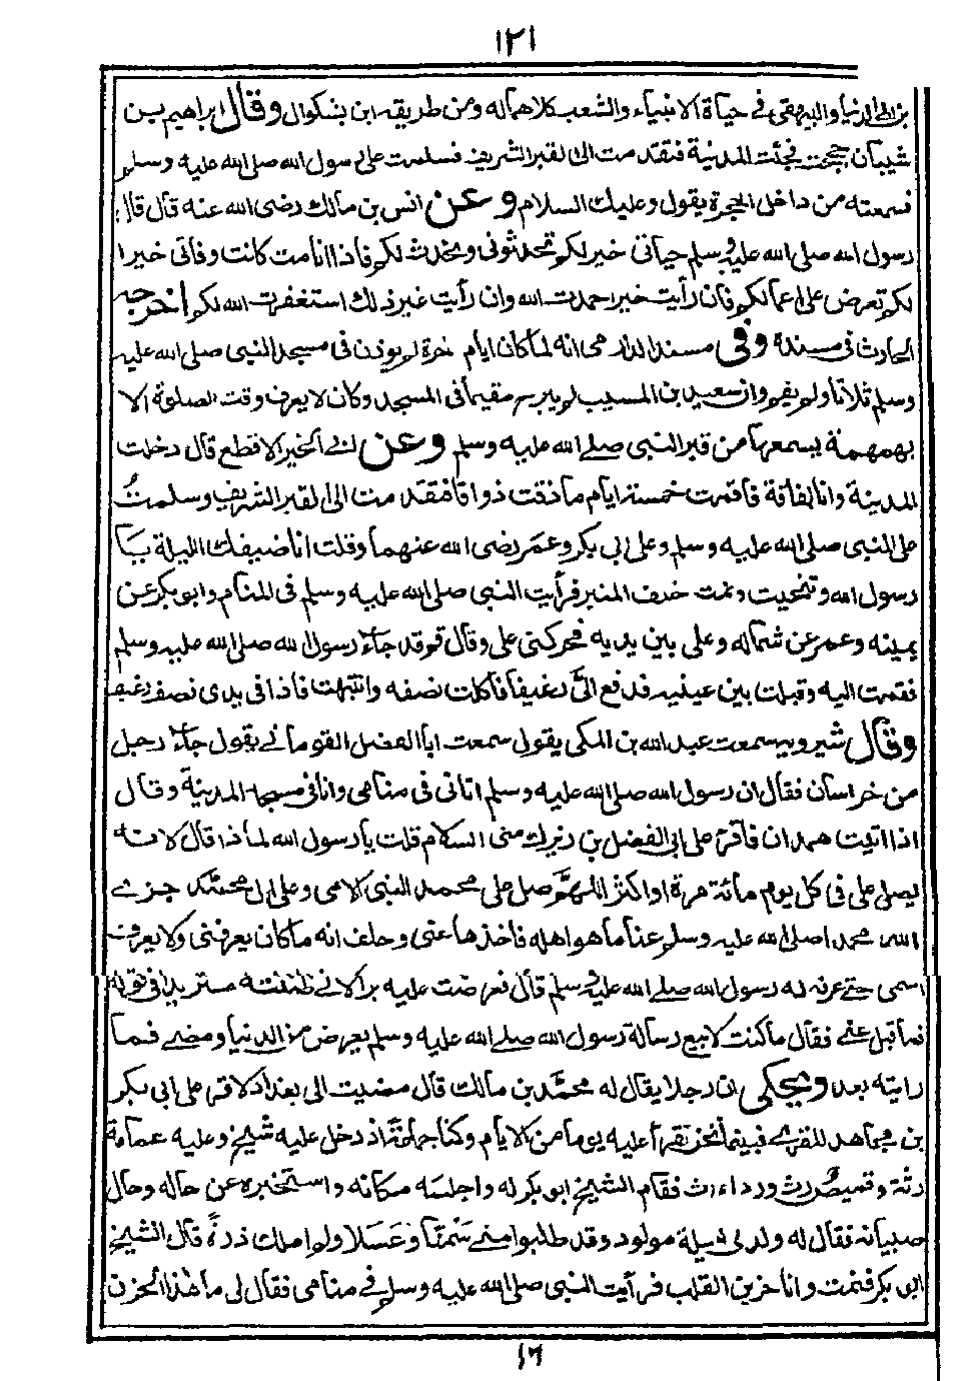 ١٢١
بن ابي الدنيا والبيهقي في حياة الانبياء والشعب كلاهما له ومن طريقه ابن بشكوال وقال ابراهيم بن
شيبان حججت فجئت المدينة فتقدمت الى القبر الشريف فسلمت على رسول الله صلى الله عليه وسلم
فسمعته من داخل الحجرة يقول وعليك السلام وعن انس بن مالك رضى الله عنه قال قال
رسول الله صلى الله عليه وسلم حياتي خير لكم تحدثوني ونحدث لكم فاذا انا مت كانت وفاتي خيرا
لكم تعرض على اعمالكم فان رأيت خيرا حمدت الله وان رأيت غير ذلك استغفرت الله لكم اخرجه
الحارث في مسنده وفي مسند الدارمي انه لما كان ايام حرة لم يوذن في مسجد النبي صلى الله عليه
وسلم ثلاثا ولم يقم وان سعيد بن المسيب لم يبرح مقيما في المسجد وكان لا يعرف وقت الصلوة الا
بهمهمة يسمعها من قبر النبي صلى الله عليه وسلم وعن ابي الخير الاقطع قال دخلت
المدينة وانا بفاقة فاقمت خمسة ايام ما ذقت ذواقا فتقدمت الى القبر الشريف وسلمت
على النبي صلى الله عليه وسلم وعلى ابي بكر وعمر رضى الله عنهما وقلت انا ضيفك الليلة يا
رسول الله وتنحيت ونمت خلف المنبر فرأيت النبي صلى الله عليه وسلم في المنام وابو بكر عن
يمينه وعمر عن شماله وعلي بين يديه فحركني علي وقال قم قد جاء رسول الله صلى الله عليه وسلم
فقمت اليه وقبلت بين عينيه فدفع الىّ رغيفا فاكلت نصفه وانتبهت فاذا في يدي نصف رغيف
وقال شيرويه سمعت عبد الله بن المكي يقول سمعت ابا الفضل القوماني يقول جاء رجل
من خراسان فقال ان رسول الله صلى الله عليه وسلم اتاني في منامي وانا في مسجد المدينة وقال
اذا اتيت همدان فاقرء على ابي الفضل بن زيرك مني السلام قلت يا رسول الله لماذا قال لانه
يصلي علي في كل يوم مائة مرة او اكثر اللهم صل على محمد النبي الامي وعلى ال محمد جزى
الله محمدا صلى الله عليه وسلم عنا ما هو اهله فاخذها عني وحلف انه ما كان يعرفني ولا يعرف
اسمي حتى عرفه له رسول الله صلى الله عليه وسلم قال فعرضت عليه برا لاني ظننته متزيدا في قوله
فما قبل عني فقال ما كنت لابيع رسالة رسول الله صلى الله عليه وسلم بعرض من الدنيا ومضى فما
رايته بعد ويحكى ان رجلا يقال له محمد بن مالك قال مضيت الى بغداد لاقرء على ابي بكر
بن مجاهد المقري فبينما نحن نقرأ عليه يوما من الايام وكنا جماعة اذ دخل عليه شيخ وعليه عمامة
رثة وقميص رث ورداء رث فقام الشيخ ابو بكر له واجلسه مكانه واستخبره عن حاله وحال
صبيانه فقال له ولد لي الليلة مولود وقد طلبوا مني سَمْنًا وعَسَلا ولم املك ذرةً قال الشيخ
ابو بكر فنمت وانا حزين القلب فرأيت النبي صلى الله عليه وسلم في منامي فقال لي ما هذا الحزن
١٦